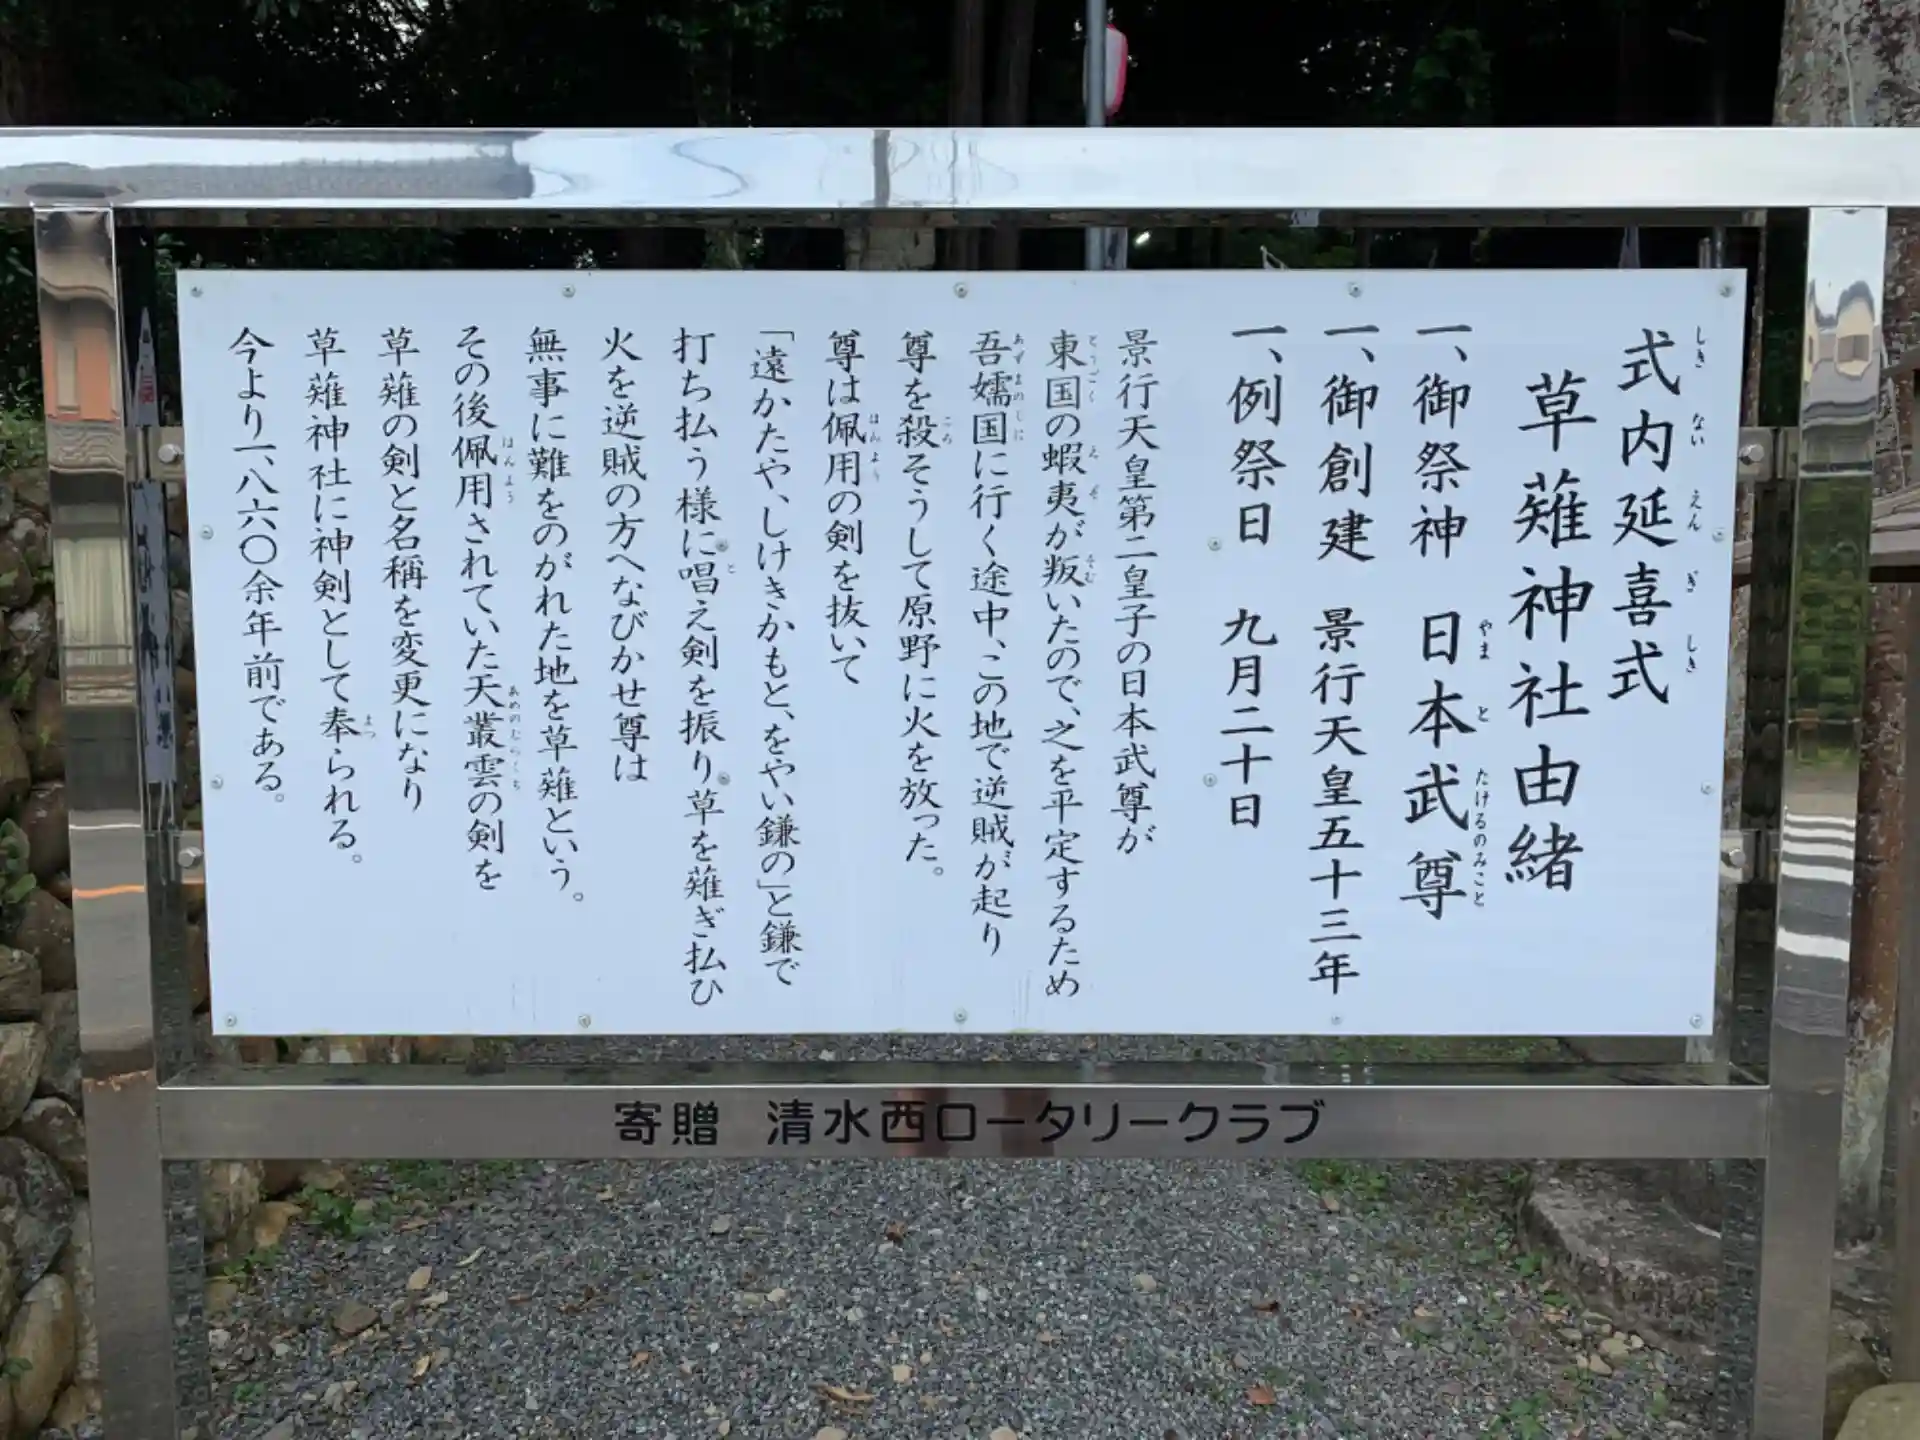 式内延喜式
草薙神社由緒
一、御祭神　日本武尊
一、御創建　景行天皇五十三年
一、例祭日　九月二十日
景行天皇第二皇子の日本武尊が
東国の蝦夷が叛いたので、之を平定するため
吾嬬国に行く途中、この地で逆賊が起り
尊を殺そうして原野に火を放った。
尊は佩用の剣を抜いて
「遠かたや、しけきかもと、をやい鎌の」と鎌で
打ち払う様に唱え剣を振り草を薙ぎ払ひ
火を逆賊の方へなびかせ尊は
無事に難をのがれた地を草薙という。
その後佩用されていた天叢雲の剣を
草薙の剣と名稱を変更になり
草薙神社に神剣として奉られる。
今より一、八六〇余年前である。
寄贈　清水西ロータリークラブ